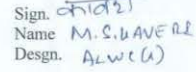 Sign. कावेरी
Name M.S.KAVERI
Desgn. ALWC(C)